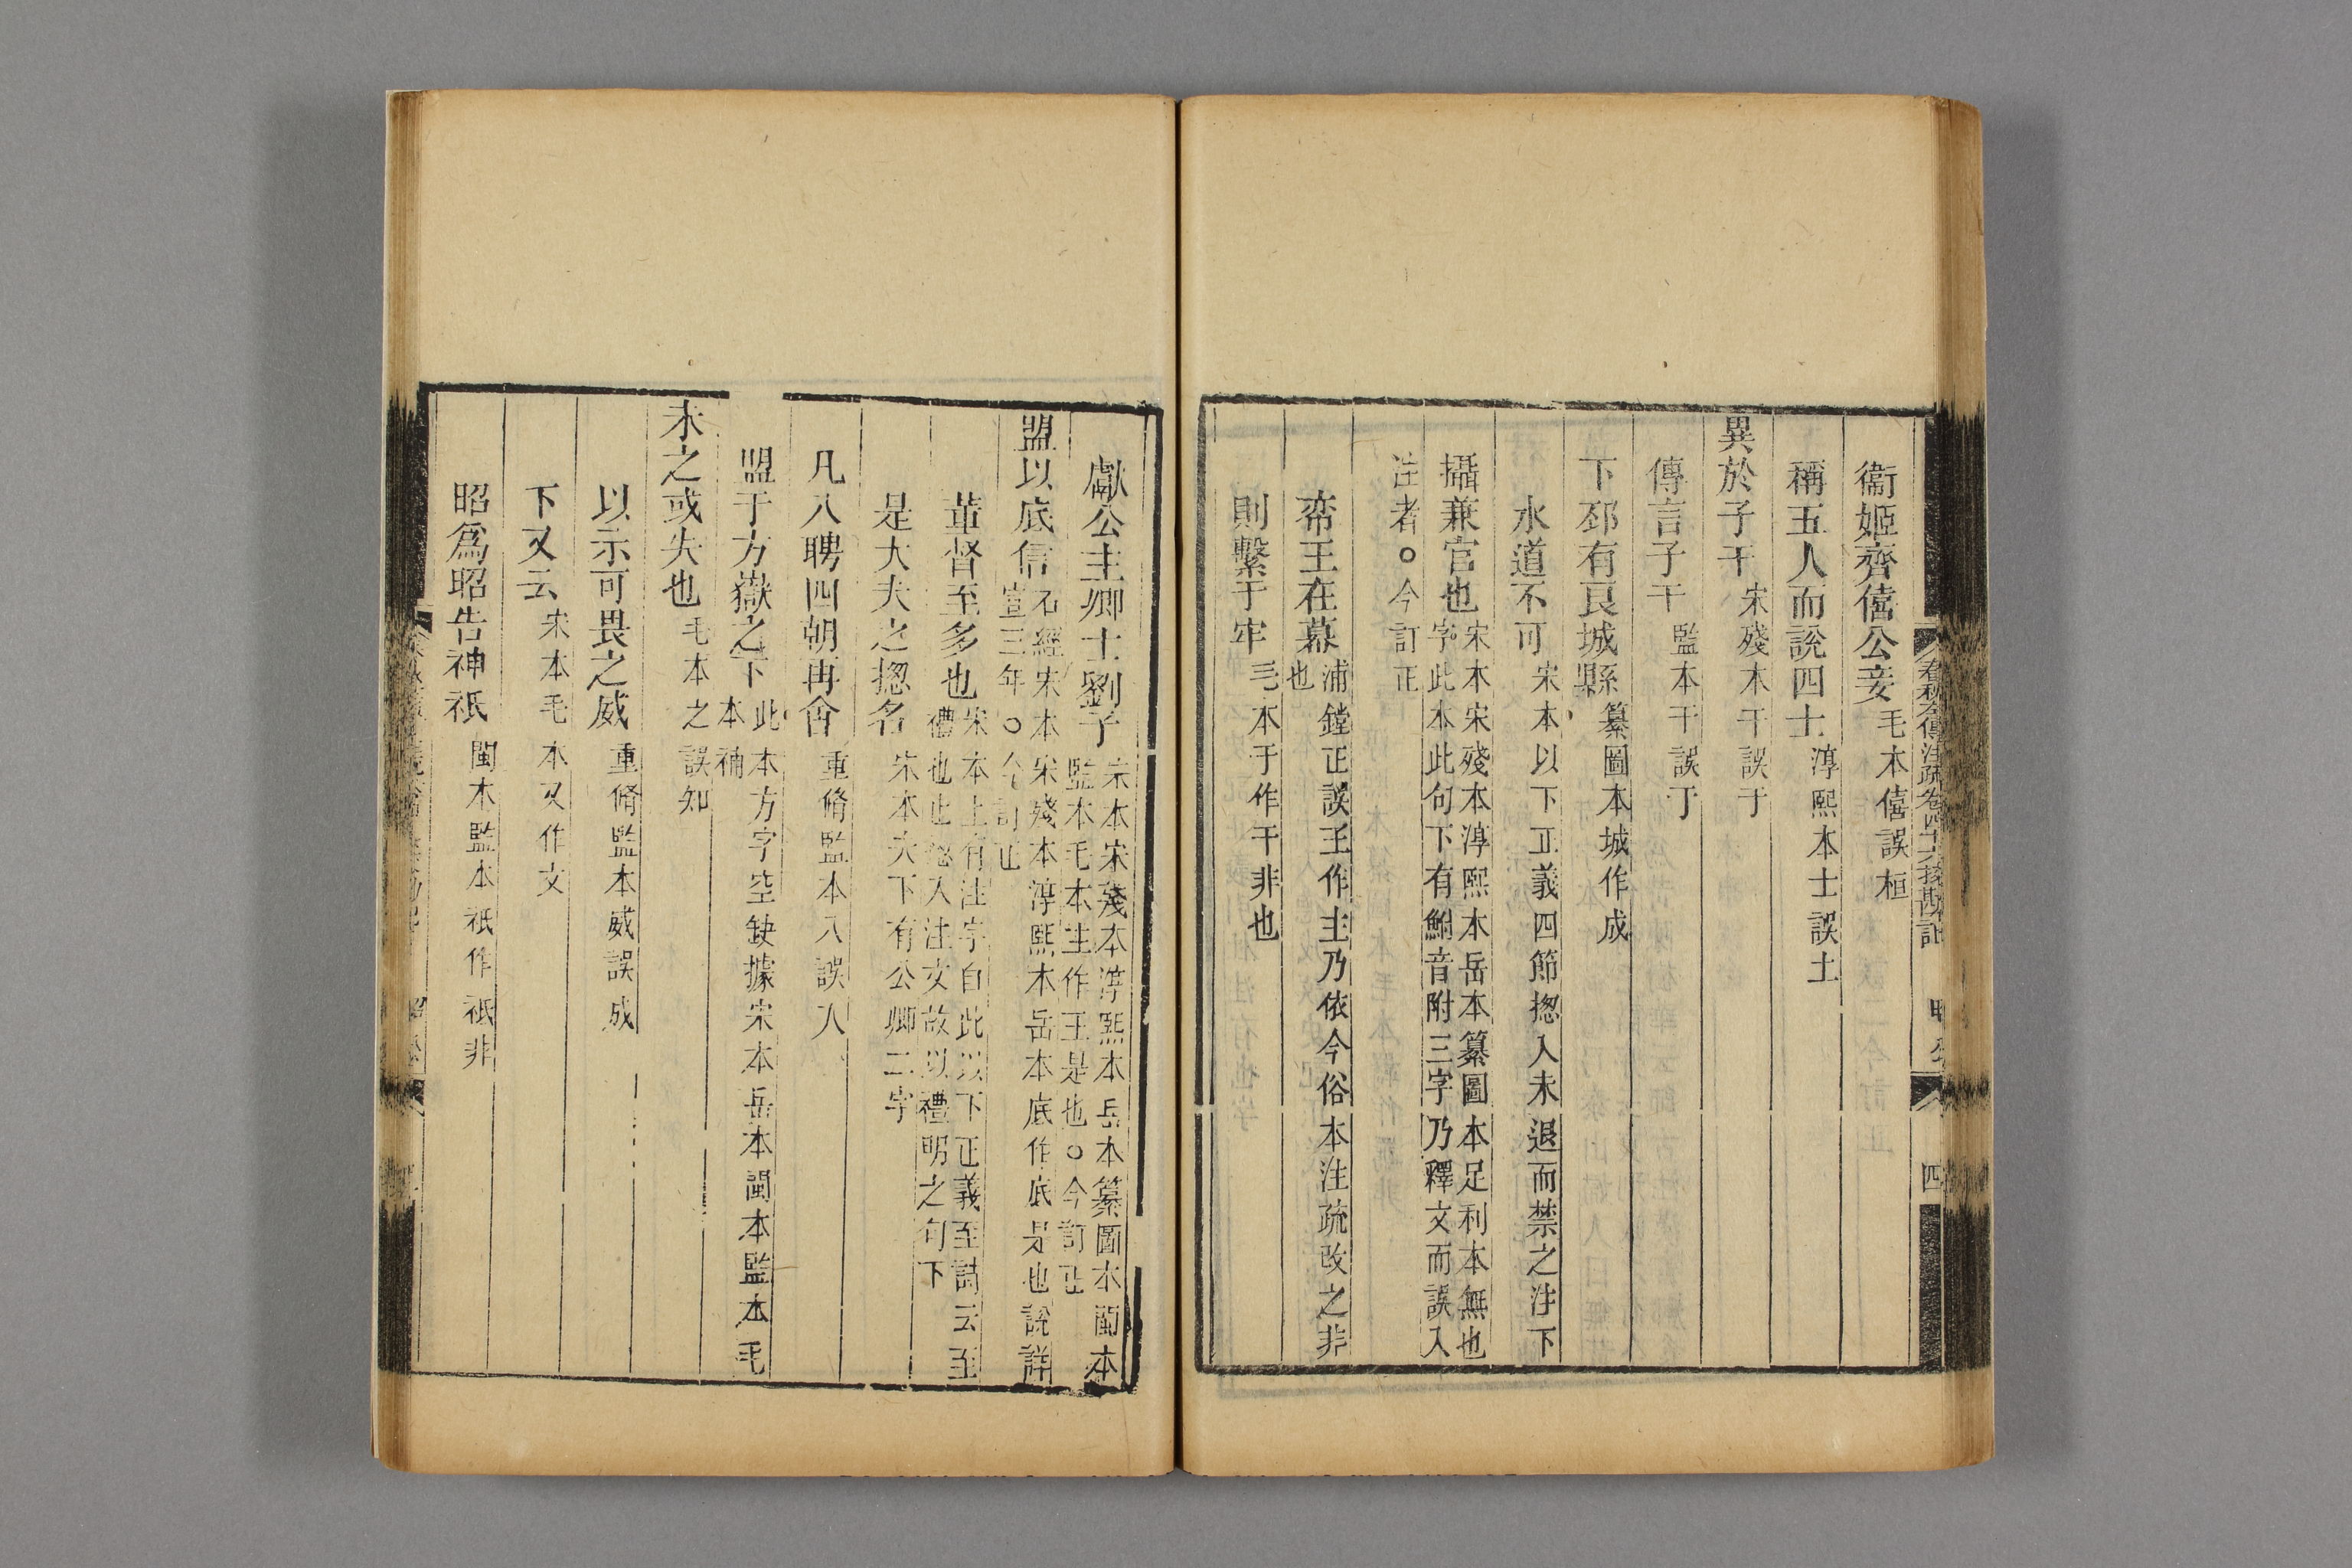 衞姬齊僖公妾毛本僖誤桓
稱五人而說四士淳熙本士誤土
異於子干宋殘本干誤于
傳言子干監本干誤丁
下邳有良城縣纂圖本城作成
水道不可宋本以下正義四節揔入未退而禁之注下
攝兼官也宋本宋殘本淳熙本岳本纂圖本足利本無也
字此本此句下有鮒音附三字乃釋文而誤入
注者○今訂正
帟王在幕浦鏜正誤王作主乃依今俗本注疏改之非
也
則繫于牢毛本于作干非也
春秋左傳注疏卷四十六挍勘記
四
獻公主卿士劉子宋本宋殘本淳熙本岳本纂圖本閩本
監本毛本主作王是也○今訂正
盟以底信石經宋本宋殘本淳熙本岳本底作厎是也說詳
宣三年○今訂正
董督至多也宋本上有注字自此以下正義至詩云至
禮也止揔入注文故以禮明之句下
是大夫之揔名宋本夫下有公卿二字
凡八聘四朝再會重脩監本八誤人
盟于方嶽之下此本方字空缺據宋本岳本閩本監本毛
本補
未之或失也毛本之誤知
以示可畏之威重脩監本威誤成
下又云宋本毛本又作文
昭爲昭告神祇閩本監本祇作祗非